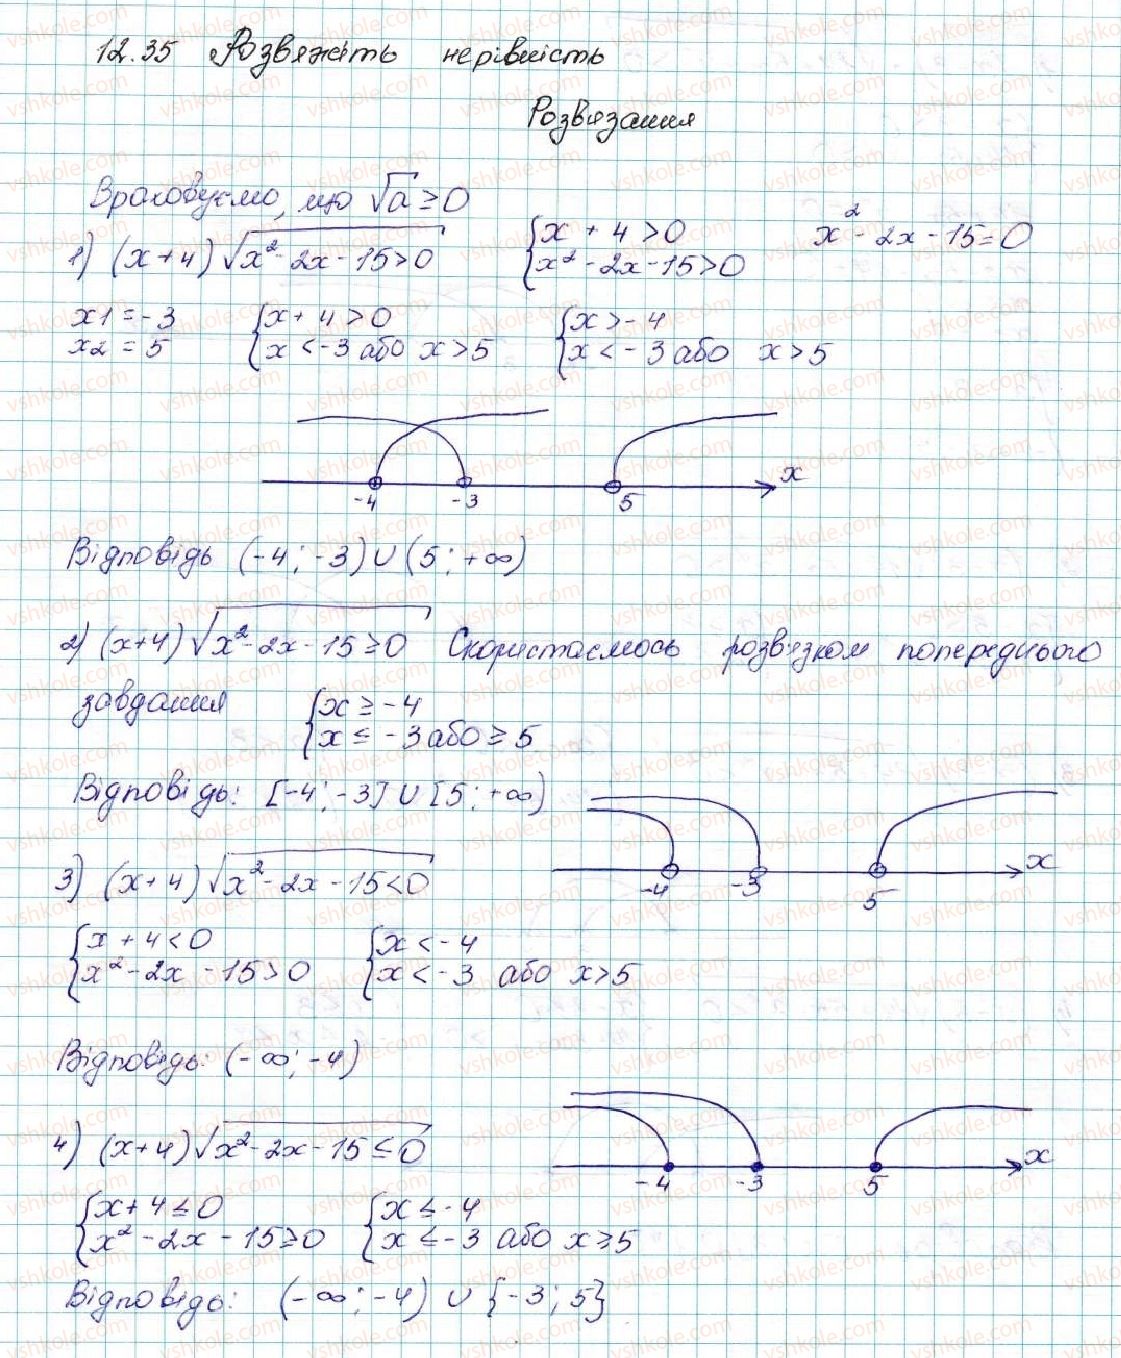 12.35 Розвяжіть нерівність
Розвязання
Враховуємо, що √a ≥ 0
1) (x+4)√x²-2x-15>0 {x+4>0 x²-2x-15=0
{x²-2x-15>0
x1=-3 {x+4>0 {x>-4
x2=5 {x<-3 або x>5 {x<-3 або x>5
-4 -3 5 x
Відповідь (-4;-3)∪(5;+∞)
2) (x+4)√x²-2x-15≥0 Скористаємось розвязком попереднього
завдання {x≥-4
{x≤-3 або ≥5
Відповідь: [-4;-3]∪[5;+∞)
-4 -3 5 x
3) (x+4)√x²-2x-15<0
{x+4<0 {x<-4
{x²-2x-15>0 {x<-3 або x>5
Відповідь: (-∞;-4)
-4 -3 5 x
4) (x+4)√x²-2x-15≤0
{x+4≤0 {x≤-4
{x²-2x-15≥0 {x≤-3 або x≥5
Відповідь: (-∞;-4) ∪ {-3;5}